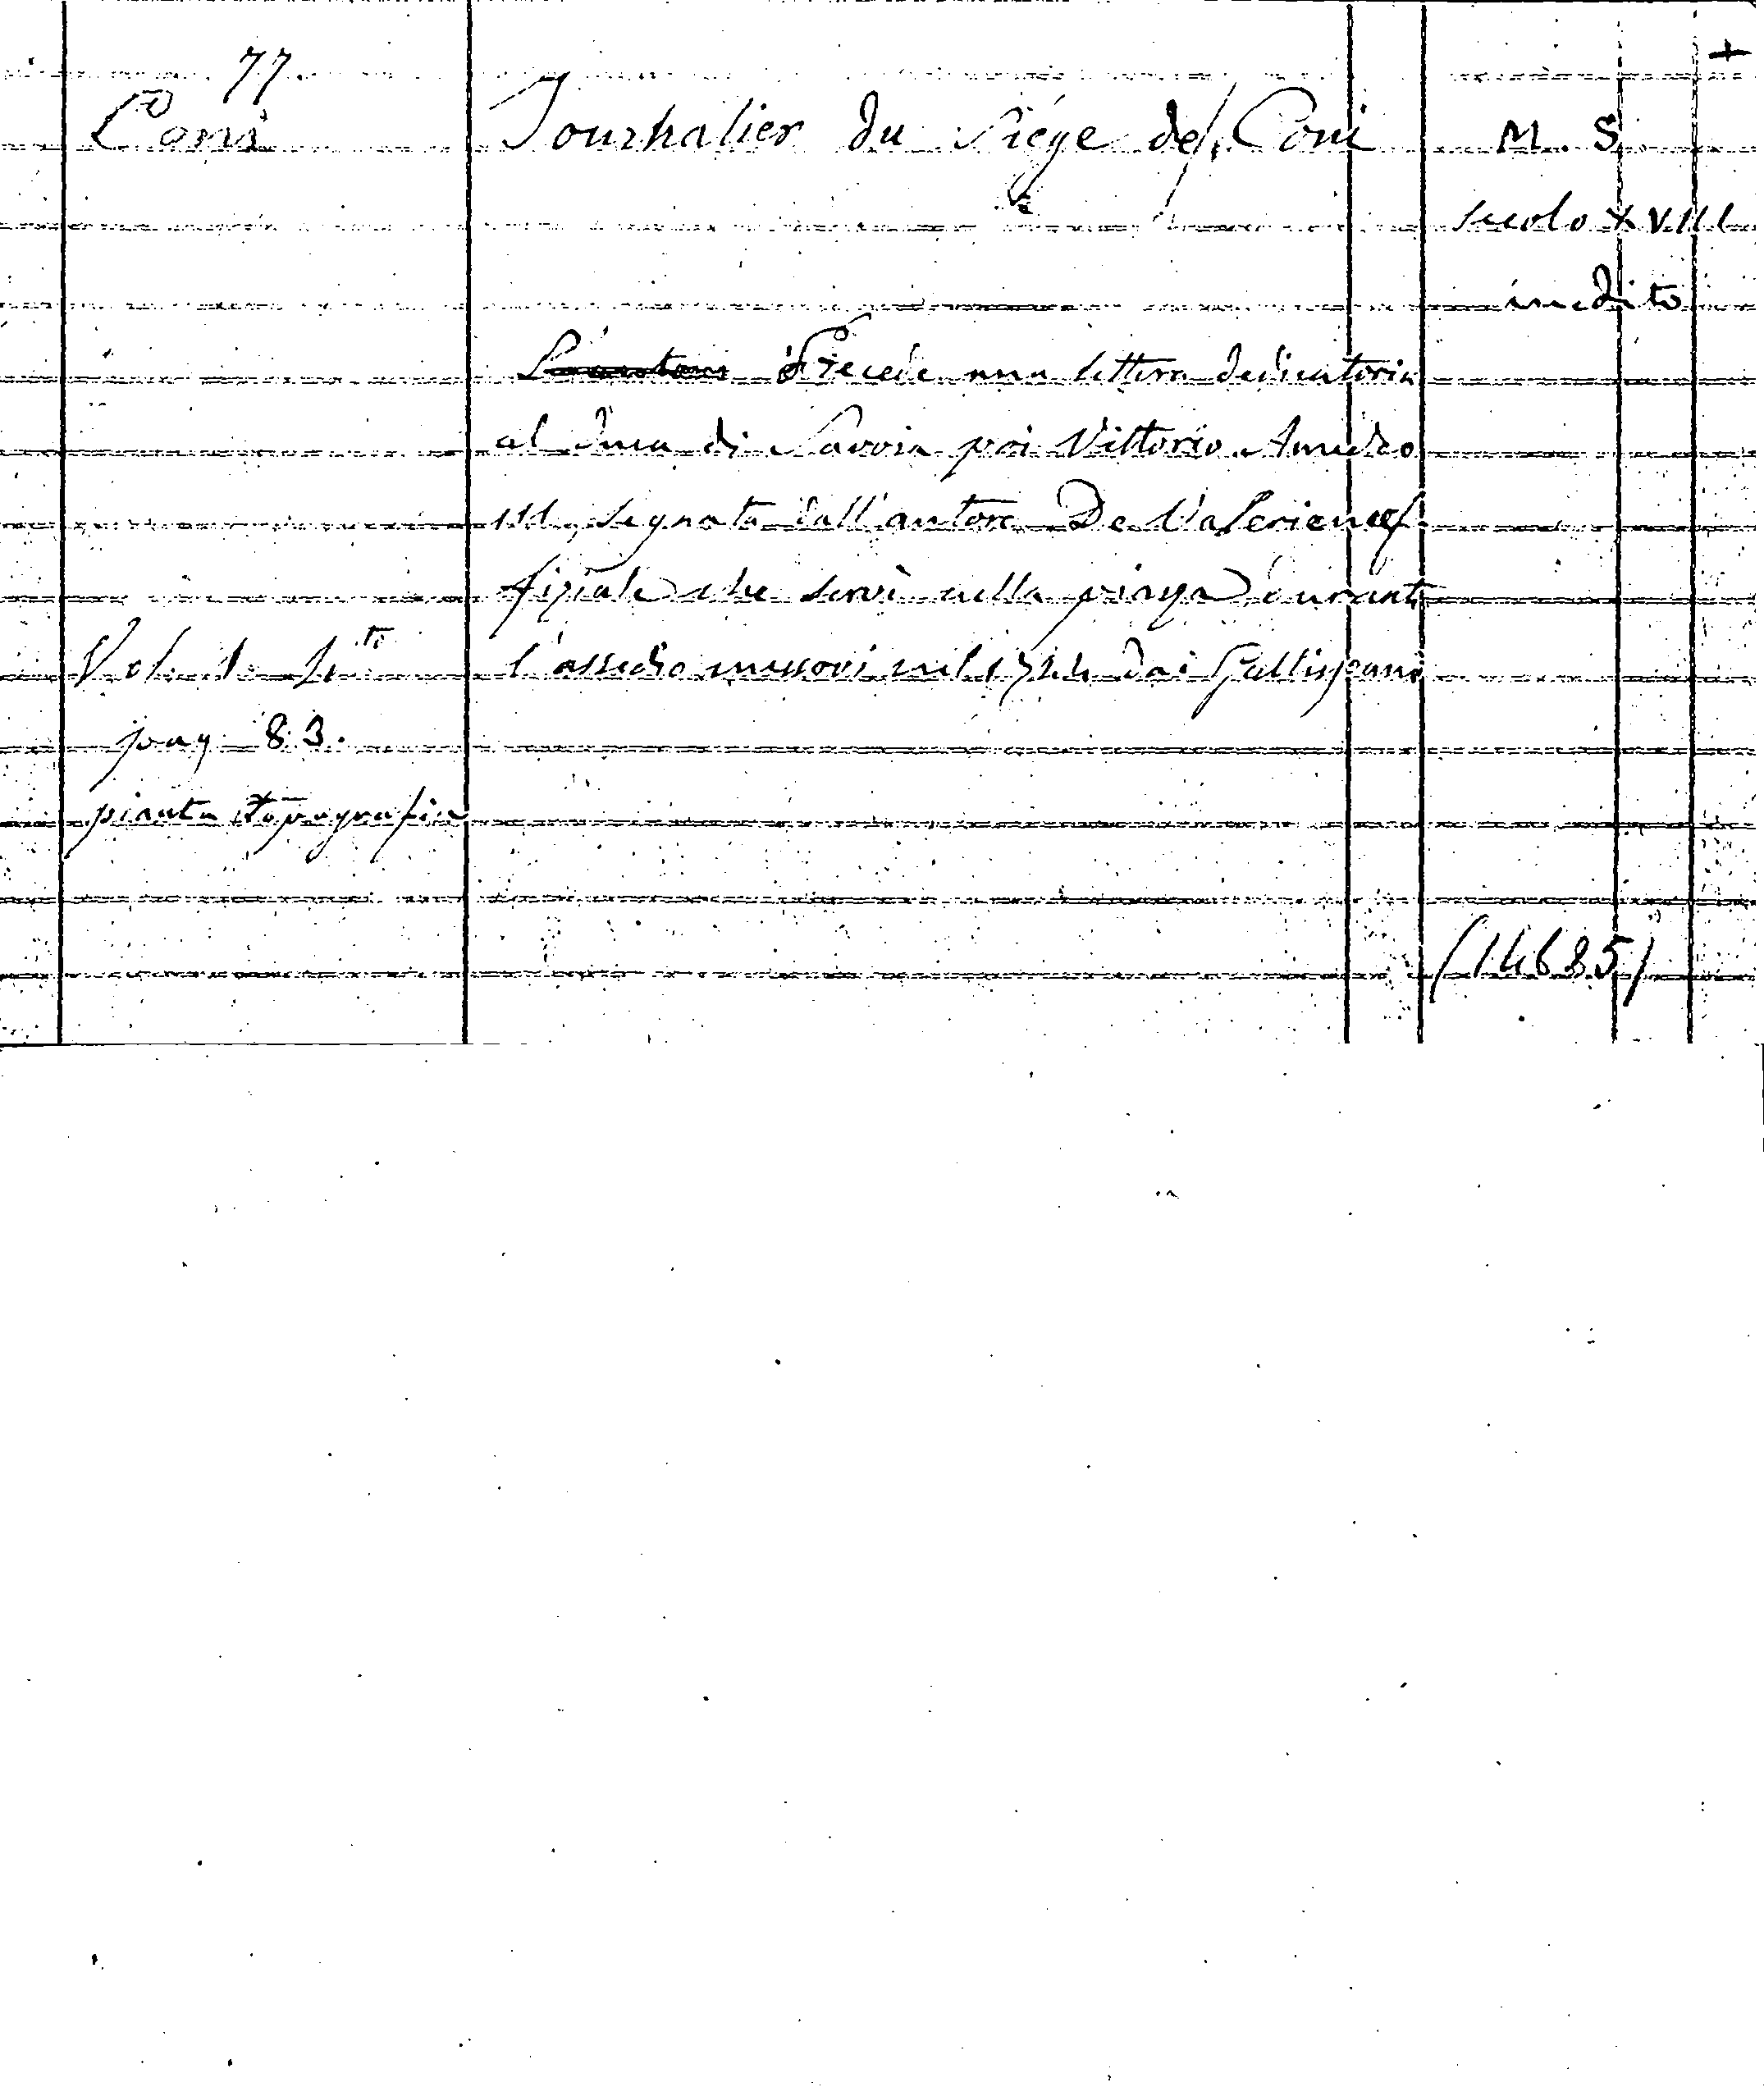 +
77
Coni Journalier du Siége de Coni M. S
secolo XVIII
inedito
Precede una lettera dedicatoria
al Duca di Savoia poi Vittorio Amedeo
III, segnata dall'autore De Valerien uf-
fiziale che servì nella piazza durante
Vol. 1. 4to l'assedio mossovi nel 1744 dai Gallispani
pag 83.
pianta topografica
(14685)